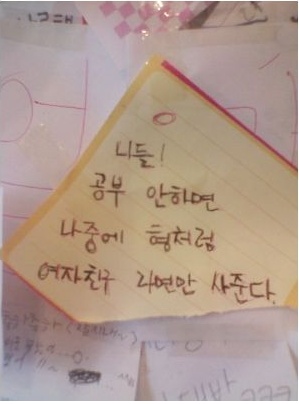 니들!
공부 안하면
나중에 형처럼
여자친구 라면만 사준다.
대박 ㅋㅋㅋ